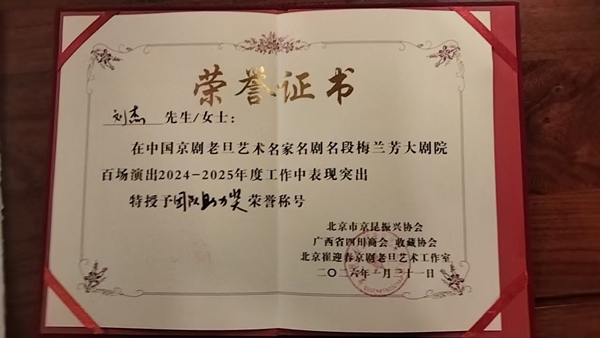 荣誉证书
刘杰 先生/女士：
在中国京剧老旦艺术名家名剧名段梅兰芳大剧院
百场演出2024-2025年度工作中表现突出
特授予团队助力奖荣誉称号
北京市京昆振兴协会
广西省四川商会 收藏协会
北京崔迎春京剧老旦艺术工作室
二〇二六年一月三十一日